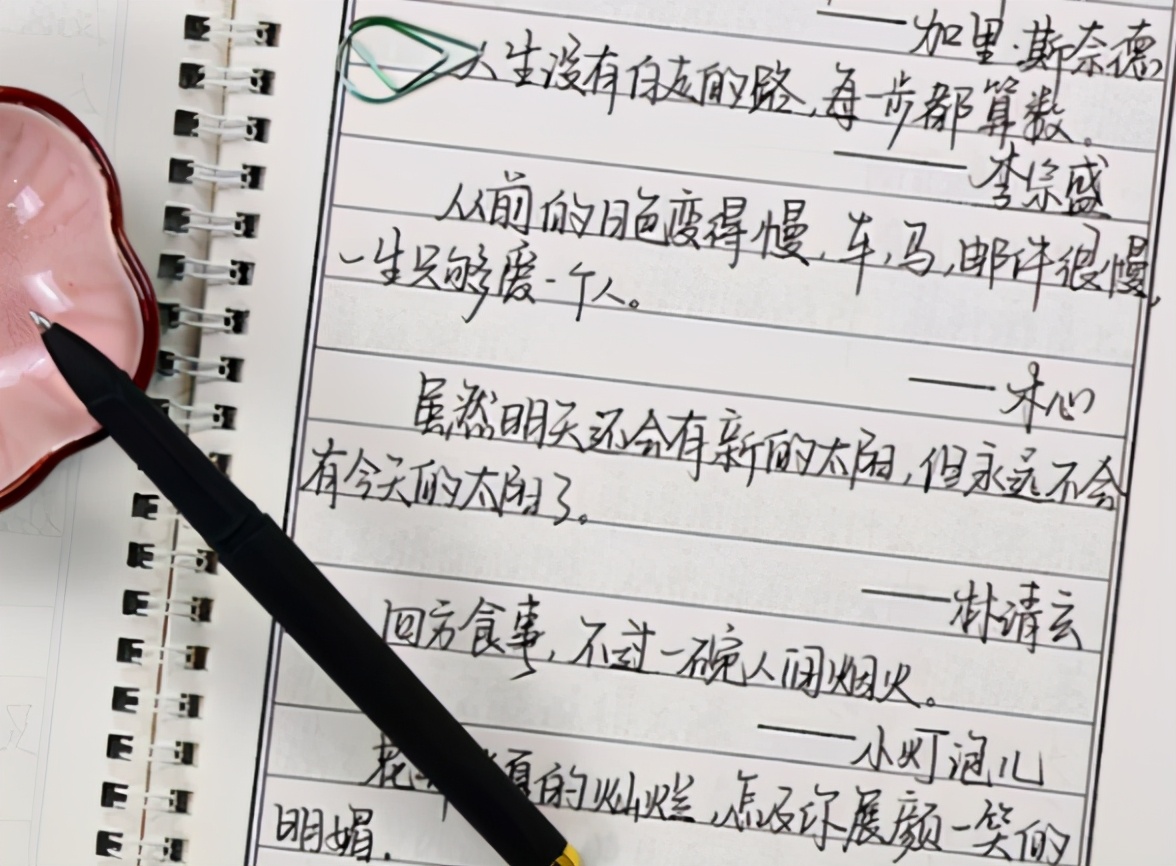 ——加里·斯奈德
人生没有白走的路,每一步都算数。
——李宗盛
从前的日色变得慢,车,马,邮件很慢,
一生只够爱一个人。
——木心
虽然明天还会有新的太阳,但永远不会
有今天的太阳了。
——林清玄
四方食事,不过一碗人间烟火。
——小灯泡儿
花 夏的灿烂,怎及你展颜一笑的
明媚.